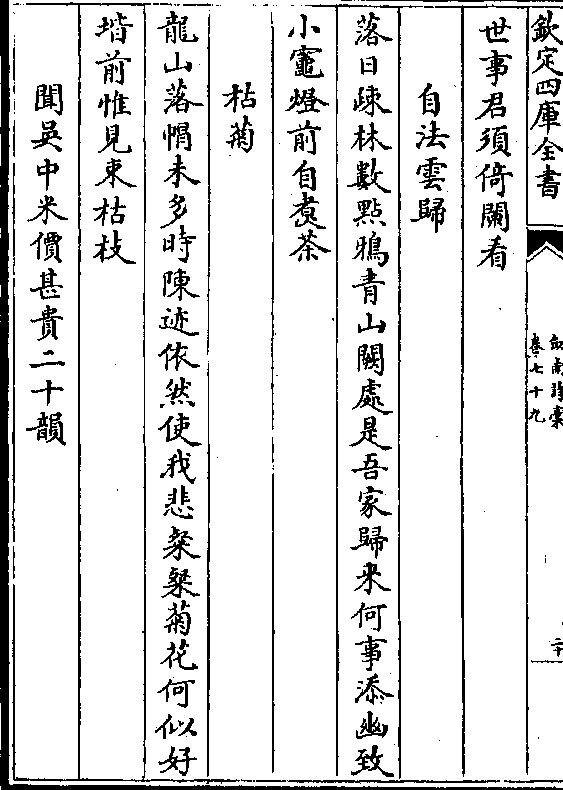 欽定四庫全書
劍南詩稾
卷七十九
二十
世事君須倚闌看
自法雲歸
落日疎林數點鴉青山闕處是吾家歸來何事添幽致
小竈燈前自煑茶
枯菊
龍山落帽未多時陳迹依然使我悲粲粲菊花何似好
堦前惟見束枯枝
聞吳中米價甚貴二十韻